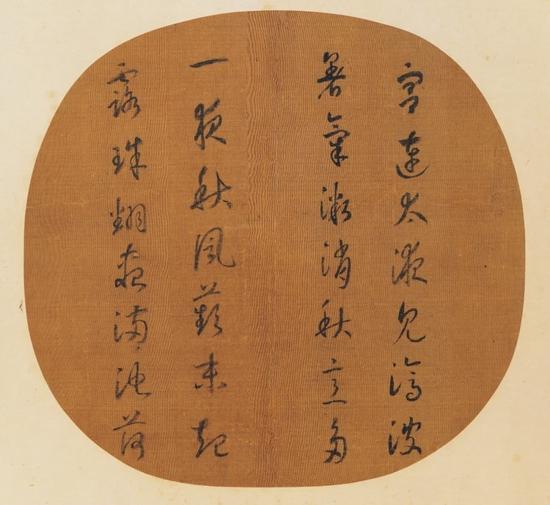 宮連太液見滄波
暑氣漸消秋意多
一夜秋風蘋末起
露珠翻盡滿池荷